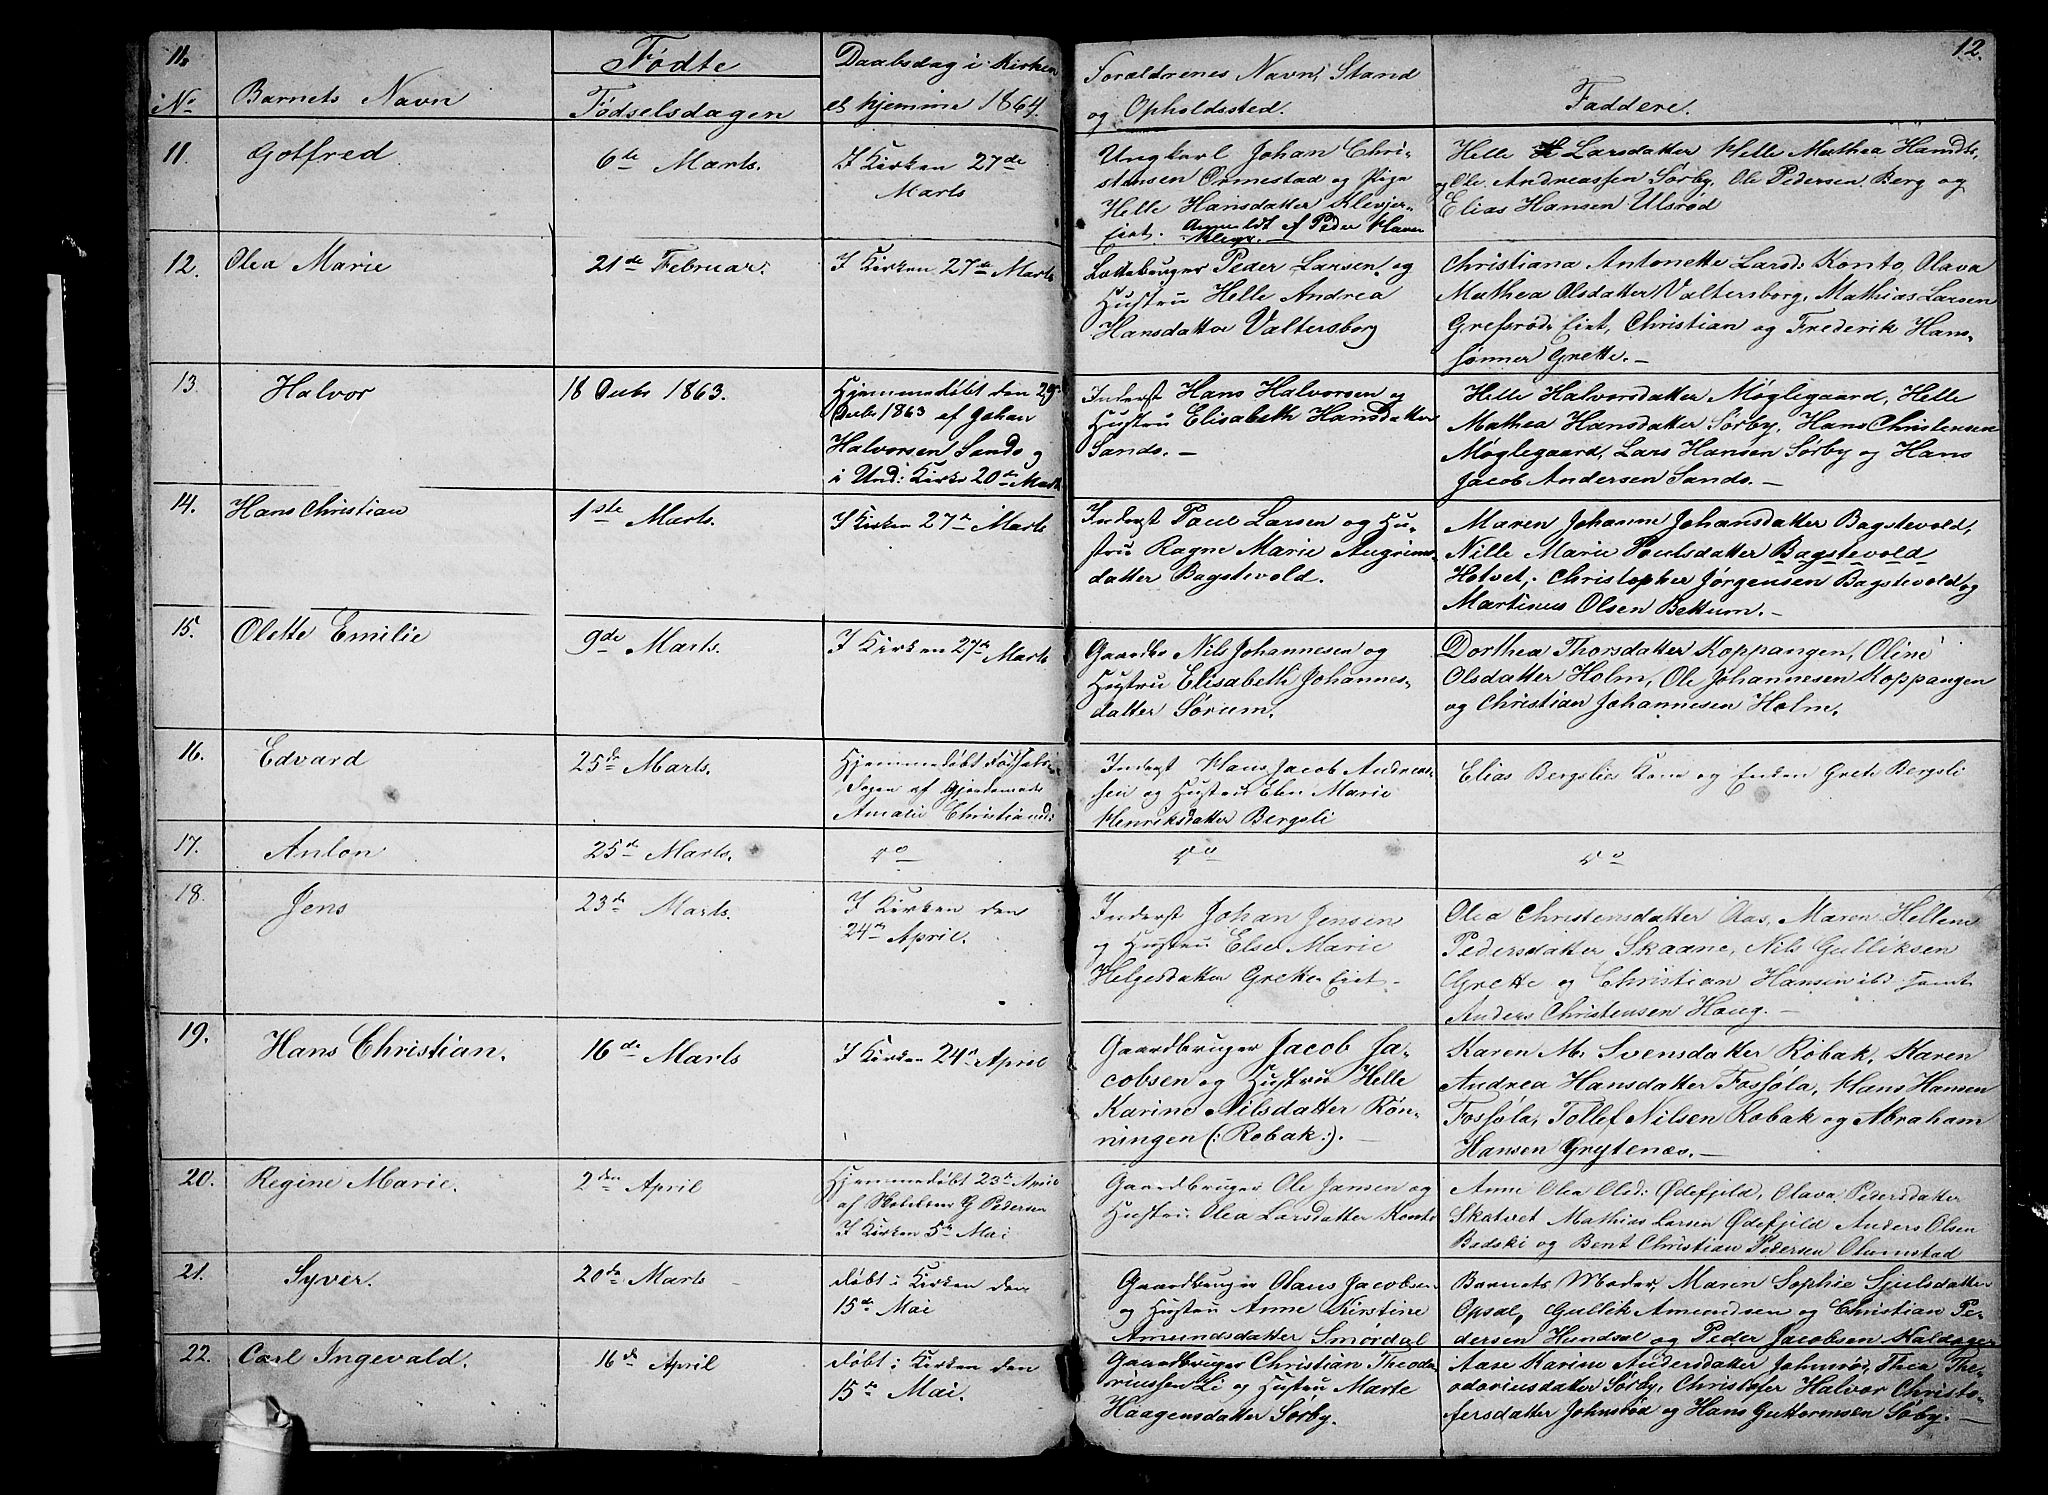 11.
No
Barnets Navn
Fødte
Fødselsdagen
Daabsdag i Kirken
el hjemme 1864.
Forældrenes Navn, Stand
og Opholdssted.
Faddere.
12.
11.
Gotfred
6te Marts.
I Kirken 27de
Marts
Ungkarl Johan Chri-
stensen Ormestad og Pige
Helle Hansdatter Klevjer-
Eiet. Anmeldt af Peder Haver
Klevjer
Helle Larsdatter Helle Mathea Handtr,
og Ole Andreassen Sørby, Ole Pedersen Berg og
Elias Hansen Ulsrød
12.
Olea Marie
21de Februar.
I Kirken 27de Marts
Peder Larsen og
Hustru Helle Andrea
Hansdatter Valtersborg
Christiana Antonette Larsd: Konto, Olava
Mathea Olsdatter Valtersborg, Mathias Larsen
Grefsrød. Eiet, Christian og Frederik Hans-
sønner Grette.—
13.
Halvor
18 Decbr 1863.
Hjemmedøbt den 29
Decbr 1863 af Johan
Halvorsen Sands og
i Und: Kirke 20de Marts
Inderst Hans Halvorsen og
Hustru Elisabeth Hansdatter
Sands.—
Helle Halvorsdatter Møglegaard, Helle
Mathea Hansdatter Sørby, Hans Christensen
Møglegaard, Lars Hansen Sørby og Hans
Jacob Andersen Sands.—
14.
Hans Christian
1ste Marts.
I Kirken 27de Marts
Inderst Paul Larsen og Hu-
stru Ragne Marie Angrims-
datter Bagstevold.
Maren Johanne Johansdatter Bagstevold,
Nille Marie Poulsdatter Bagstevold
Holvet, Christopher Jørgensen Bagstevold og
Martinus Olsen Bettum.—
15.
Olette Emilie
9de Marts.
I Kirken 27de Marts
Gaardbr Nils Johannesen og
Hustru Elisabeth Johannes-
datter Sørum.
Dorthea Thorsdatter Koppangen, Oline
Olsdatter Holm, Ole Johannesen Koppangen
og Christian Johannesen Holm.
16.
Edvard
25de Marts.
Hjemmedøbt Fødsels-
dagen af Gjordemoder
Amalie Christiansd:
Inderst Hans Jacob Andreas-
sen og Hustru Elen Marie
Henriksdatter Bergsli
Elias Bergslies Kone og Enken Grete Bergsli
17.
Anton
25de Marts.
do
do
do
18.
Jens
23de Marts.
I Kirken den
24de April.
Inderst Johan Jensen
og Hustru Else Marie
Helgesdatter Grette Eiet.
Olea Christensdatter Aas, Maren Hellene
Pedersdatter Skaane, Nils Gulliksen
Grette og Christian Hansen ibd samt
Anders Christensen Haug.—
19.
Hans Christian.
16de Marts
I Kirken 24de April
Gaardbruger Jacob Ja-
cobsen og Hustru Helle
Karine Nilsdatter Røn-
ningen (: Robak:).—
Karen M. Svensdatter Robak, Karen
Andrea Hansdatter Fosføla, Hans Hansen
Fosføla, Tollef Nilsen Robak og Abraham
Hansen Grytenæs.—
20.
Regine Marie.
2den April
Hjemmedøbt 23de April
af G Pedersen
I Kirken 5te Mai
Gaardbruger Ole Jansen og
Hustru Olea Larsdatter Konto
Anne Olea Olsd: Ødefjeld, Olava Pedersdatter
Skatvet Mathias Larsen Ødefjeld Anders Olsen
Bedski og Bent Christian Pedersen Olumstad
21.
Syver.
20de Marts
døbt i Kirken den
15de Mai
Gaardbruger Olaus Jacobsen
og Hustru Anne Kirstine
Amundsdatter Smørdal
Barnets Moder, Maren Sophie Sjulsdatter
Opsal, Gullik Amundsen og Christian Pe-
dersen Hundsal og Peder Jacobsen Haldager
22.
Carl Ingevald.
16de April
døbt i Kirken den
15de Mai.
Gaardbruger Christian Theodo-
riussen Li og Hustru Marte
Haagensdatter Sørby.
Aase Karine Andersdatter Johnsrød, Thea The-
odoriusdatter Sørby, Christofer Halvor Christo-
fersdatter Johnsrød og Hans Guttormsen Sørby.—